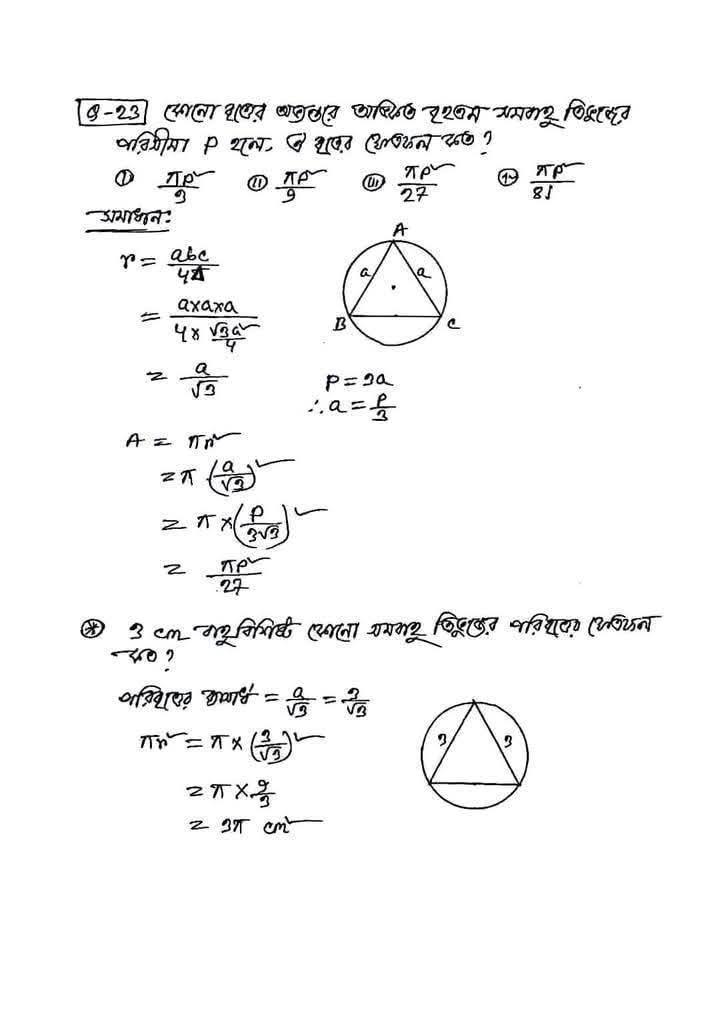 Q-23 কোনো বৃত্তের অভ্যন্তরে অঙ্কিত বৃহত্তম সমবাহু ত্রিভুজের
পরিসীমা P হলে, ঐ বৃত্তের ক্ষেত্রফল কত?
(i) πp²/3 (ii) πp²/9 (iii) πp²/27 (iv) πp²/81
সমাধান:
r = abc/4Δ
= a×a×a/(4×√3a²/4)
= a/√3
A
a a
B C
P = 3a
∴ a = P/3
A = πr²
= π(a/√3)²
= π×(P/3√3)²
= πp²/27
⊛ 3 cm বাহুবিশিষ্ট কোনো সমবাহু ত্রিভুজের পরিবৃত্তের ক্ষেত্রফল
কত?
পরিবৃত্তের ব্যাসার্ধ = a/√3 = 3/√3
πr² = π×(3/√3)²
= π×9/3
= 3π cm²
3 3